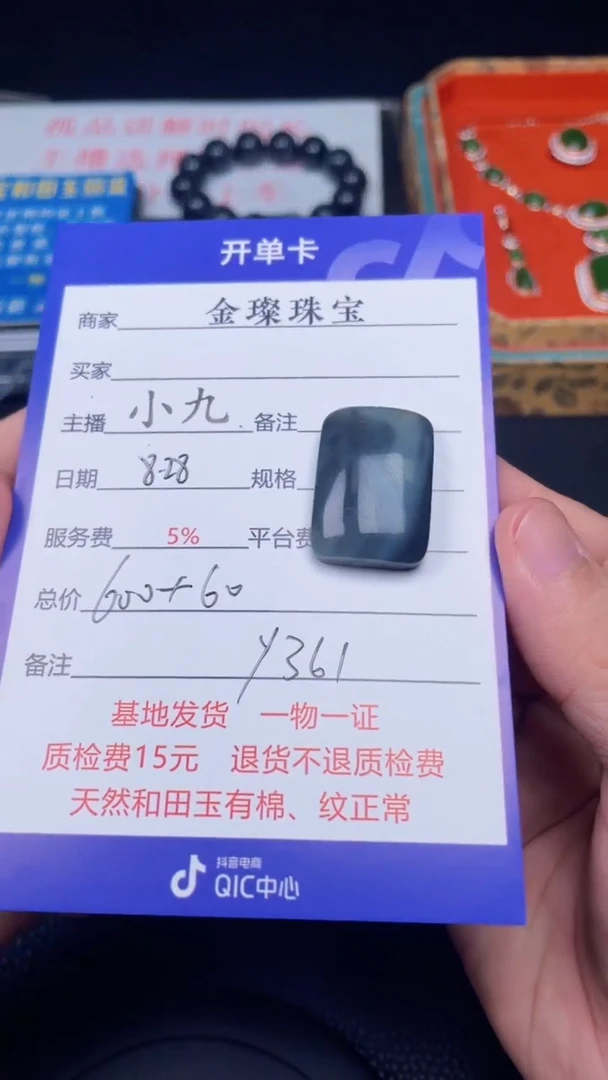 开单卡
商家 金璨珠宝
买家
主播 小九 备注
日期 8-28 规格
服务费 5% 平台费
总价 600+60
备注 Y361
基地发货 一物一证
质检费15元 退货不退质检费
天然和田玉有棉、纹正常
抖音电商
QIC中心